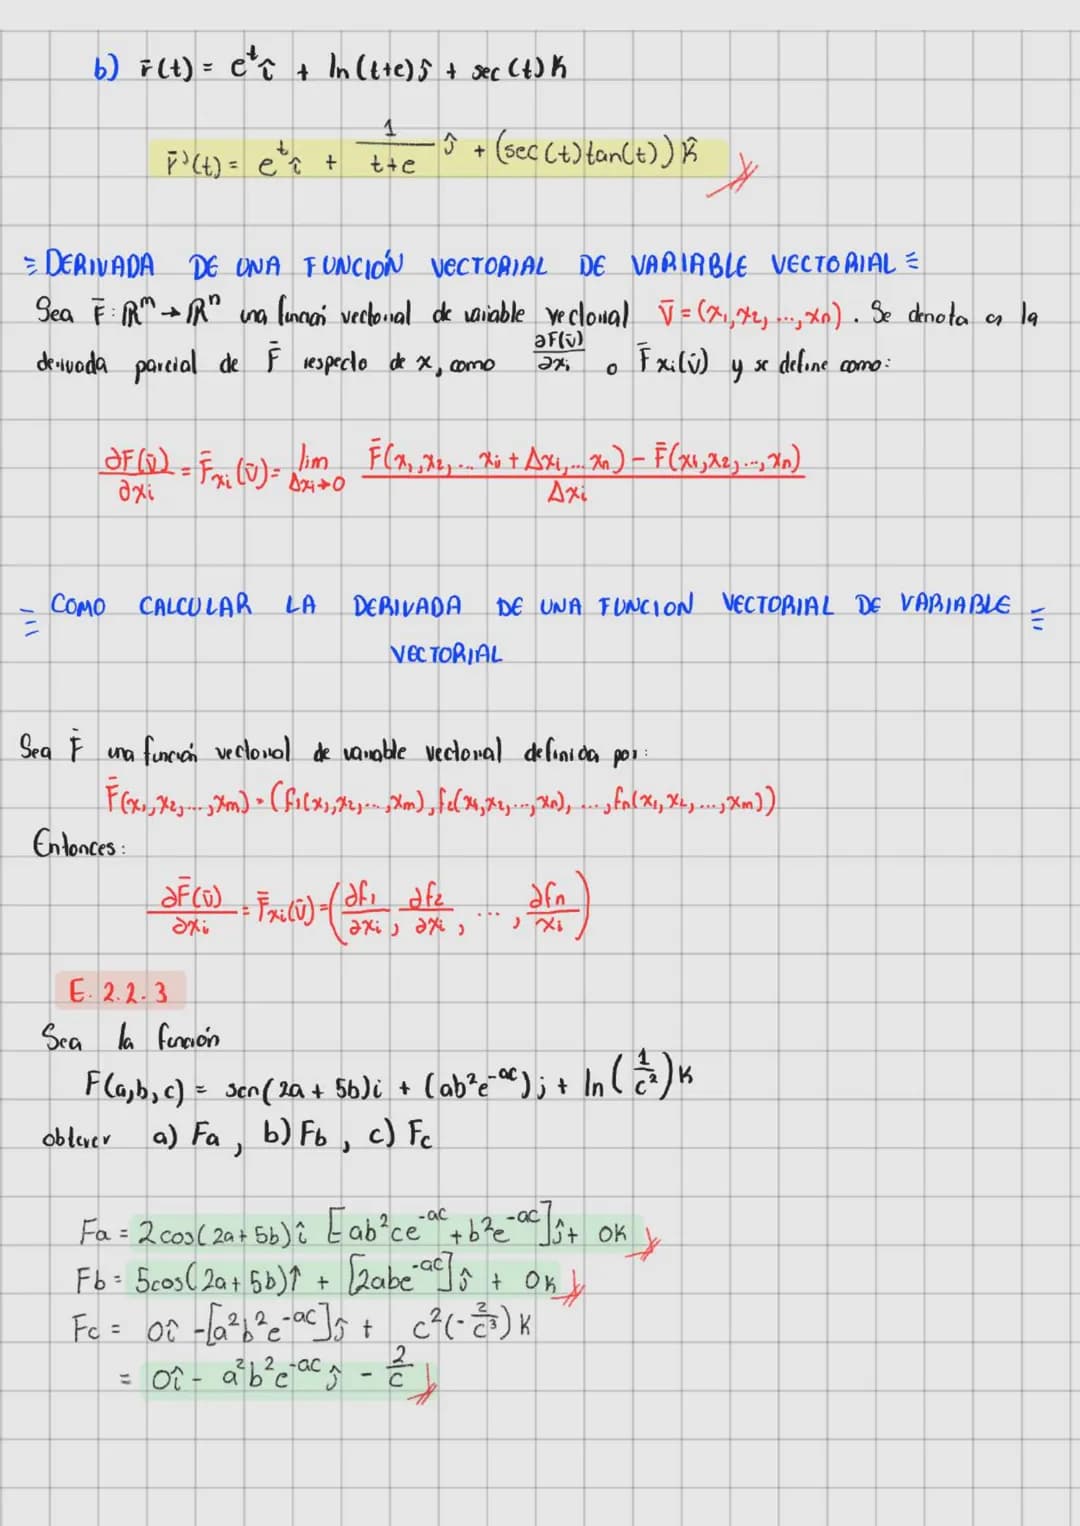 b) r̄(t) = e^t î + ln(t+e)ĵ + sec(t)k
r̄'(t) = e^t î + 1/(t+e) ĵ + (sec(t)tan(t)) k̂
DERIVADA DE UNA FUNCIÓN VECTORIAL DE VARIABLE VECTORIAL
Sea F̄: ℝ^m → ℝ^n una función vectorial de variable vectorial v̄ = (x₁, x₂, ..., xn). Se denota a la
derivada parcial de F̄ respecto de x, como ∂F(v̄)/∂xi o F̄xi(v̄) y se define como:
∂F(v̄)/∂xi = F̄xi(v̄) = lim Δxi→0 F̄(x₁, x₂, ... xi + Δxi, ... xn) − F̄(x₁, x₂, ..., xn) / Δxi
COMO CALCULAR LA DERIVADA DE UNA FUNCION VECTORIAL DE VARIABLE
VECTORIAL
Sea F̄ una función vectorial de variable vectorial definida por:
F̄(x₁, x₂, ..., xm) = (f₁(x₁, x₂, ..., xm), f₂(x₁, x₂, ..., xn), ..., fn(x₁, x₂, ..., xm))
Entonces:
∂F̄(v̄)/∂xi = F̄xi(v̄) = (∂f₁/∂xi, ∂f₂/∂xi, ..., ∂fn/xi)
E. 2.2.3
Sea la función
F(a,b,c) = sen(2a + 5b)i + (ab²e^-ac)j + ln(1/c²)k
obtener a) Fa, b) Fb, c) Fc
Fa = 2cos(2a + 5b)î [-ab²ce^-ac + b²e^-ac]ĵ + 0k
Fb = 5cos(2a + 5b)î + [2abe^-ac]ĵ + 0k
Fc = 0î -[a²b²e^-ac]ĵ + c²(-2/c³)k
= 0î - a²b²e^-ac ĵ - 2/c